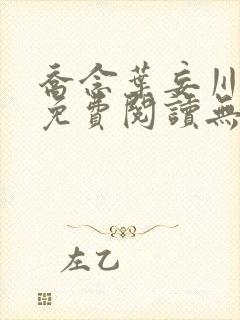 喬念葉妄川
免費閱讀無
左乙